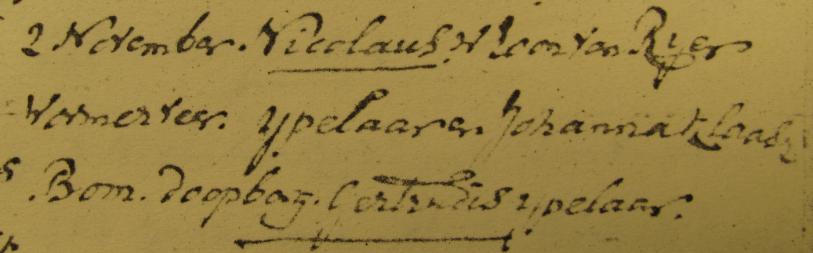 2 November. Nicolaus N Soon van Ryer
Wormerveer. Ypelaar en Johanna Klaasz
Bom. doopborg. Gertrudis ypelaar.